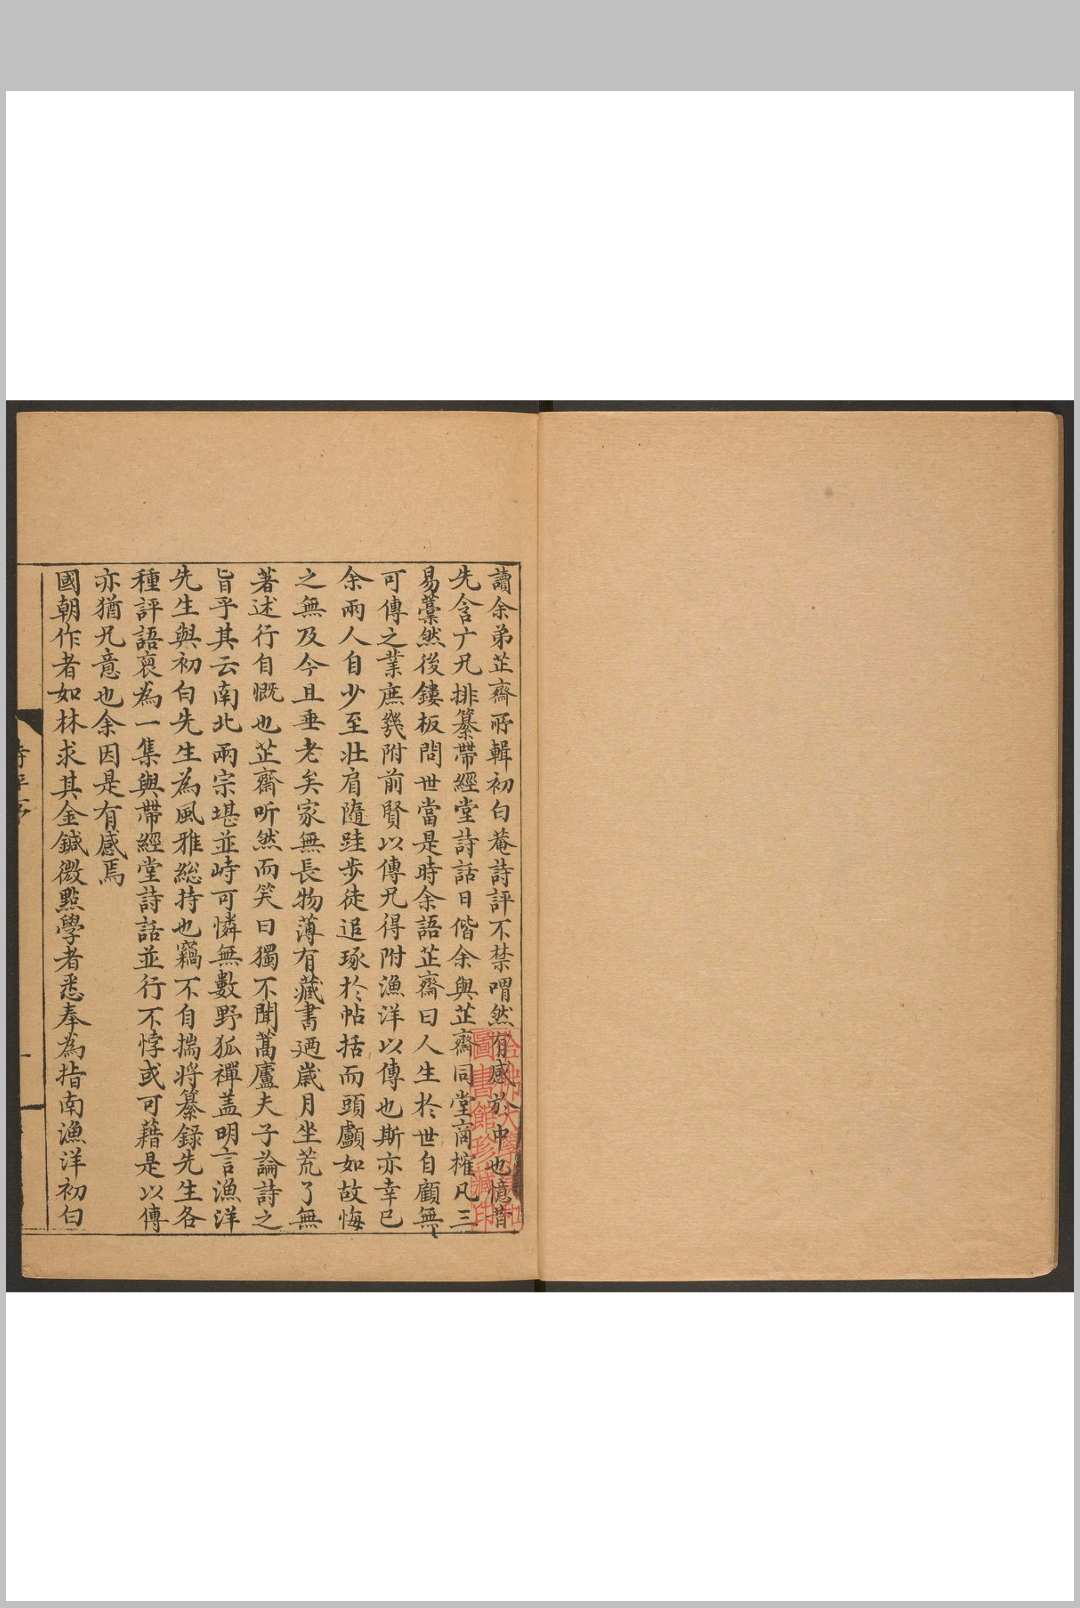 讀余弟芷齋所輯初白菴詩評不禁喟然有感於中也憶昔
先含廣兄排纂帶經堂詩話日偕余與芷齋同堂商榷凡三
易藁然後鏤板問世當是時余語芷齋曰人生於世自顧無
可傳之業庶幾附前賢以傳兄得附漁洋以傳也斯亦幸已
余兩人自少至壯肩隨跬步徒追琢於帖括而頭顱如故悔
之無及今且垂老矣家無長物薄有藏書迺歲月坐荒了無
著述行自慨也芷齋听然而笑曰獨不聞蒿廬夫子論詩之
旨乎其云南北兩宗堪並峙可憐無數野狐禪蓋明言漁洋
先生與初白先生為風雅総持也竊不自揣将纂錄先生各
種評語裒為一集與帶經堂詩話並行不悖或可藉是以傳
亦猶兄意也余因是有感焉
國朝作者如林求其金鍼微點學者悉奉為指南漁洋初白
哈佛大學
圖書館珍藏印